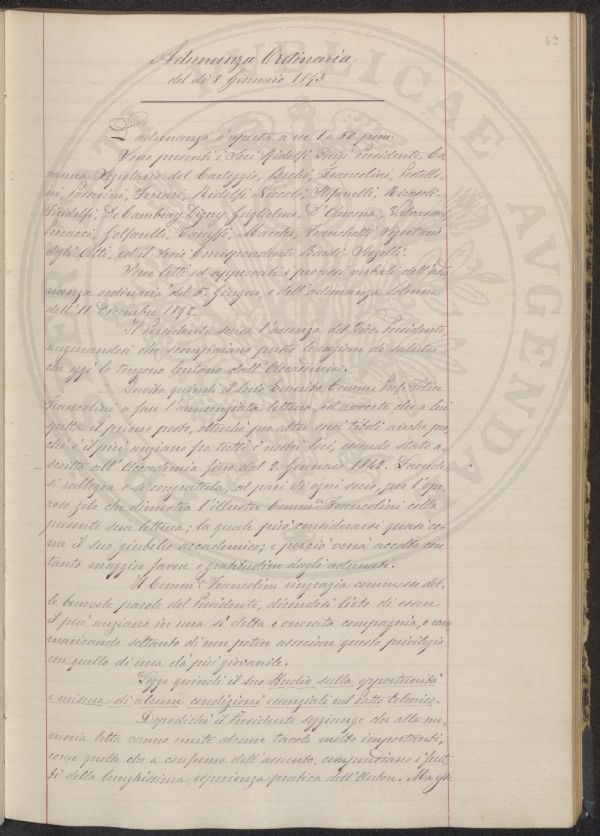 62
Adunanza Ordinaria
del dì 8 Gennaio 1893
L'adunanza è aperta a ore 1 e 50 pom.
Sono presenti i Soci Ridolfi Luigi Presidente, Ca-
Segretario del Carteggio, Bechi, Francolini, Pestelli-
ni, Passerini, Ferrari, Ridolfi Niccolò, Stefanelli, Ricasoli-
Firidolfi, De Cambray Digny Guglielmo, D'Ancona,
Golfarelli, Caruffi, Marchi, Franchetti Segretario
degli Atti, ed il Socio Corrispondente Bardi Serzelli.
Sono letti ed approvati i processi verbali dell'adu-
nanza ordinaria del 5 Giugno, e dell'adunanza solenne
dell'11 Dicembre 1892.
Il Presidente scusa l'assenza del Vice Presidente,
augurandosi che scompariano presto le cagioni di salute
che oggi lo tengono lontano dall'Accademia.
Invita quindi il Socio Emerito Comm. Prof. Felice
Francolini a fare l'annunziata lettura, ed avverte che a lui
spetta il primo posto, oltreché per altri suoi titoli anche per
chè è il più anziano fra tutti i nostri Soci, essendo stato a-
scritto all'Accademia fino dal 2 Gennaio 1842. Laonde
si rallegra e si congratula, al pari di ogni socio, per l'ope-
roso zelo che dimostra l'illustre Comm. Francolini colla
presente sua lettura; la quale può considerarsi quasi co-
me il suo giubileo accademico; e perciò verrà accolta con
tanto maggior favore e gratitudine dagli adunati.
Il Comm. Francolini ringrazia commosso del-
le benevole parole del Presidente, dicendosi lieto di essere
il più anziano in una sì eletta e onorata compagnia, e ram
maricando soltanto di non poter associare questo privilegio
con quello di una età più giovanile.
Legge quindi il suo Studio sulla opportunità
e misura di alcune condizioni essenziali nel Patto Colonico.
Dopodiché il Presidente soggiunge che alla me-
moria letta vanno unite alcune tavole molto importanti,
come quelle che a conferma dell'assunto, compendiano i frut-
ti della lunghissima esperienza pratica dell'Autore.